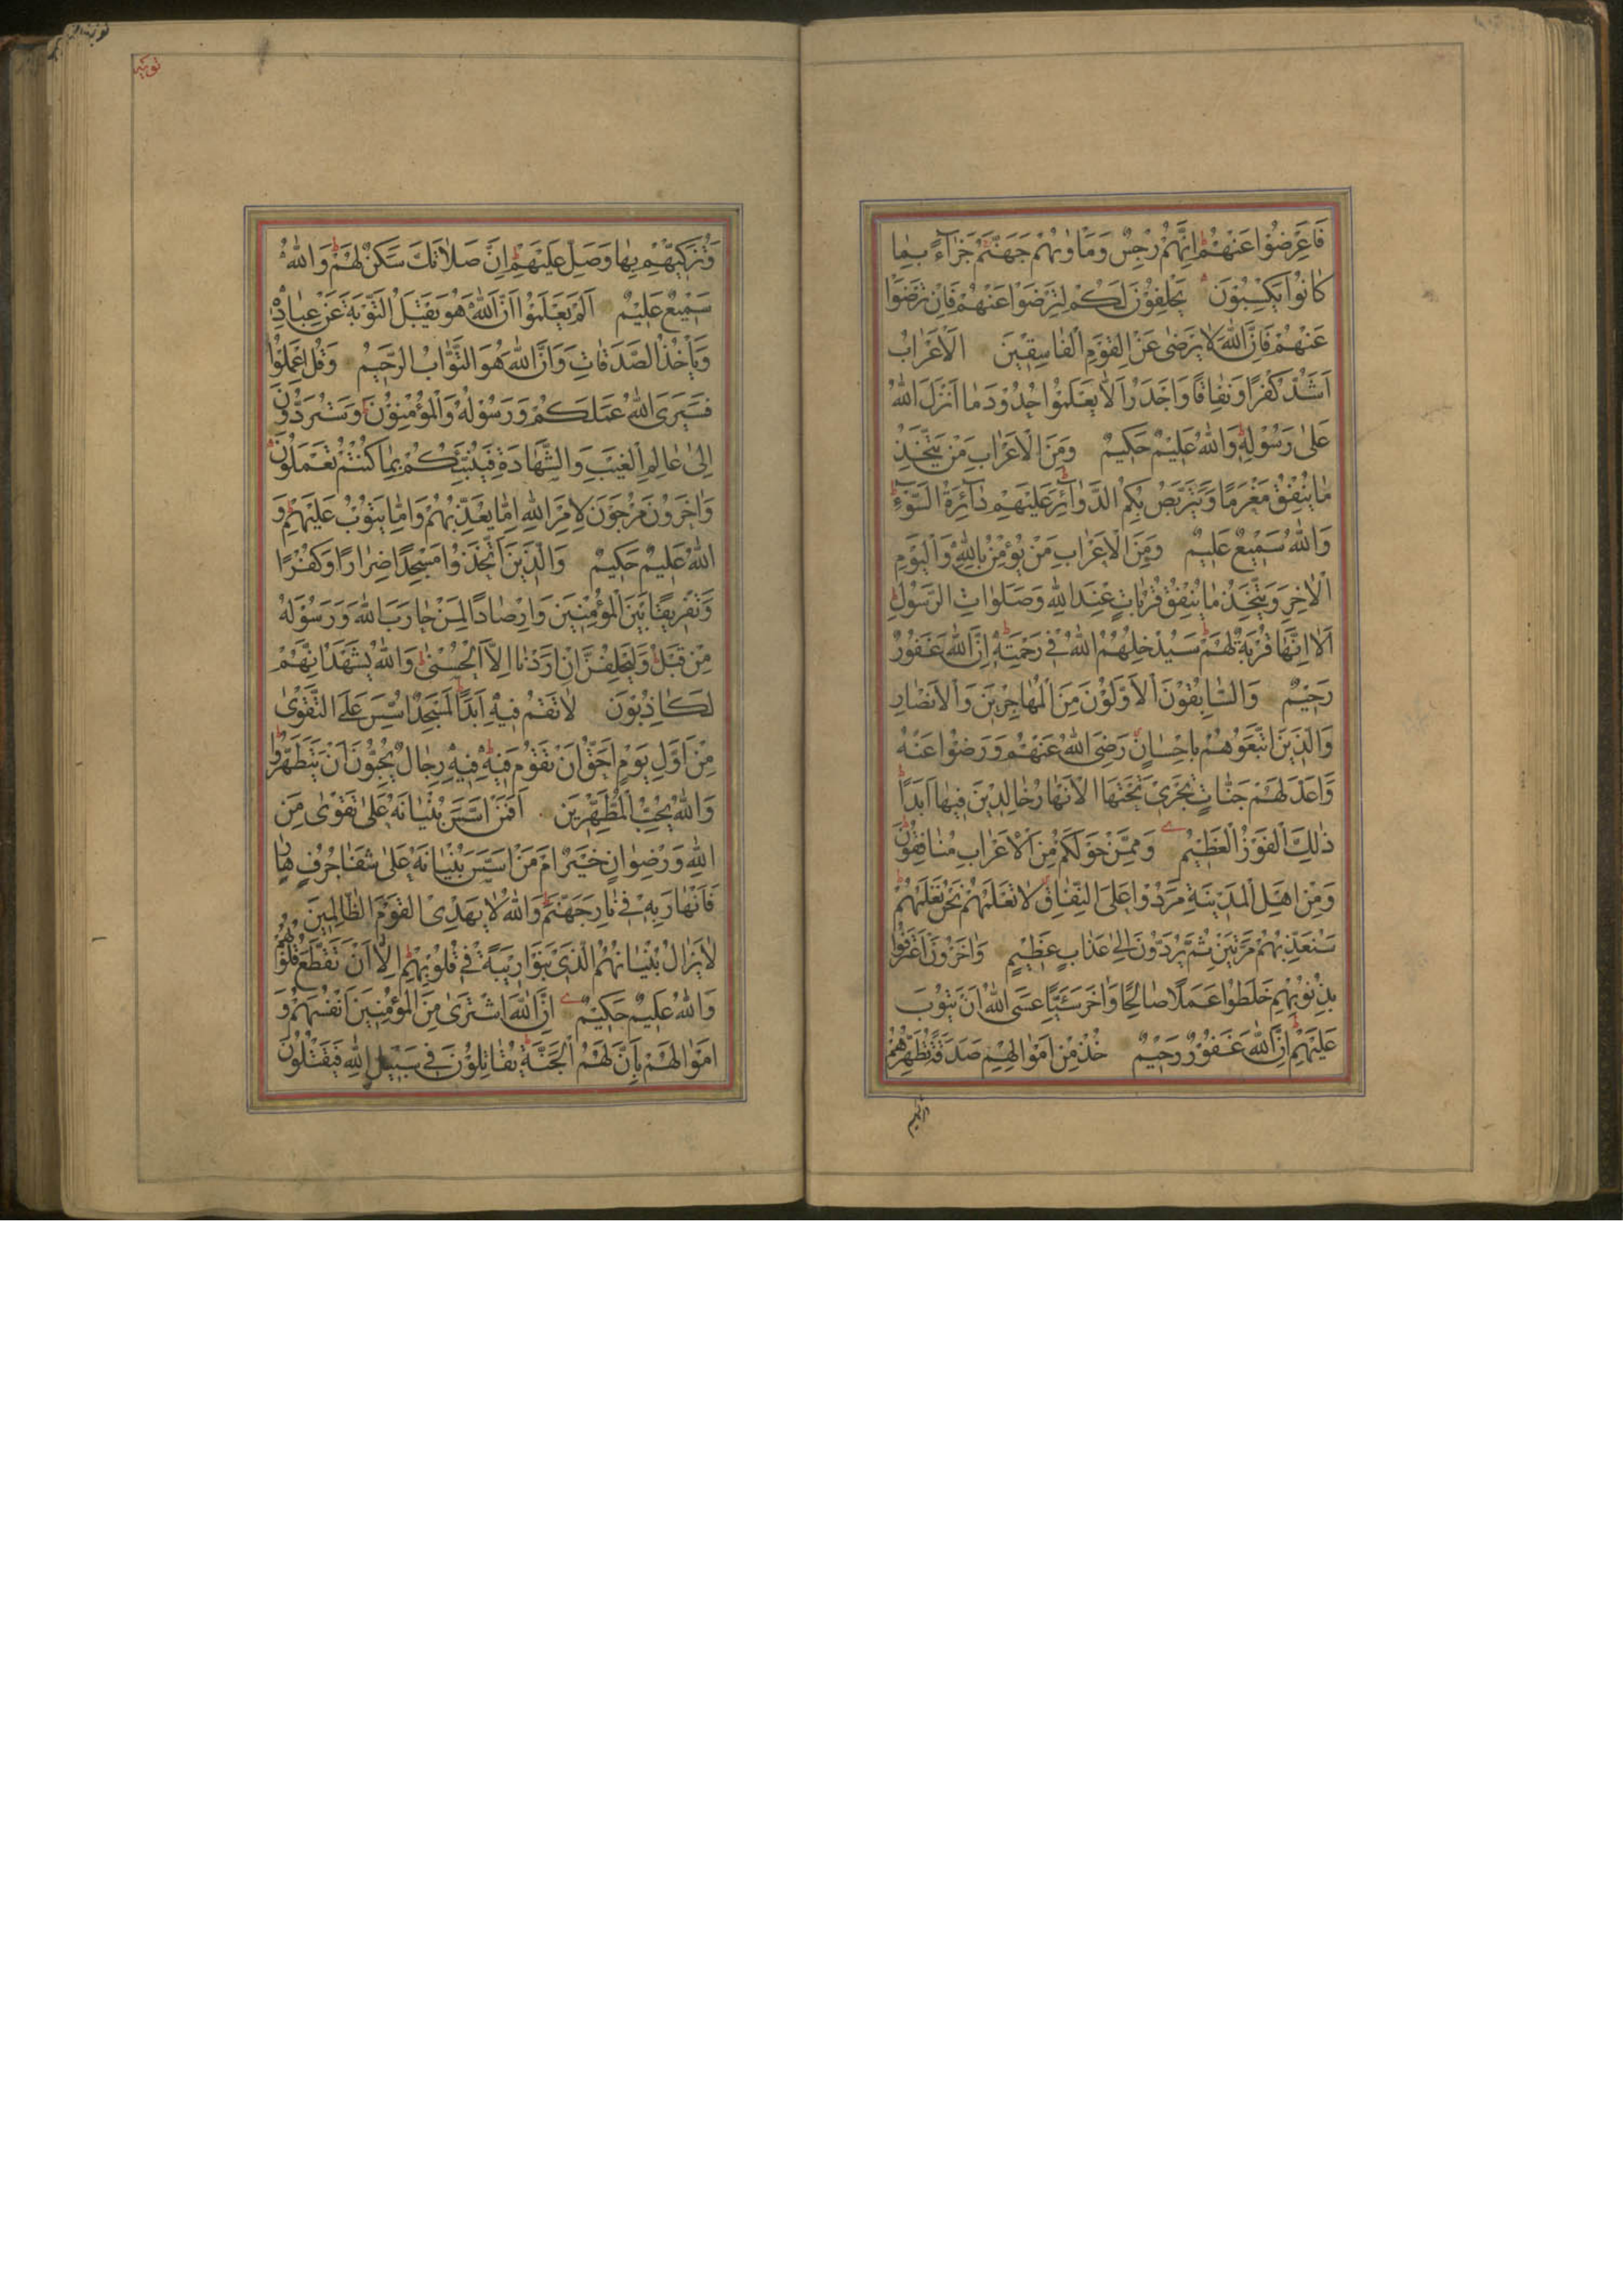 فَاَعْرِضُوْا عَنْهُمْ اِنَّهُمْ رِجْسٌ وَمَاْوٰيهُمْ جَهَنَّمُ جَزَآءً بِمٰا
كٰانُوْا يَكْسِبُوْنَ يَحْلِفُوْنَ لَكُمْ لِتَرْضَوْا عَنْهُمْ فَاِنْ تَرْضَوْا
عَنْهُمْ فَاِنَّ اللّٰهَ لاٰ يَرْضٰى عَنِ الْقَوْمِ الْفٰاسِقِيْنَ اَلْاَعْرٰابُ
اَشَدُّ كُفْرًا وَنِفٰاقًا وَاَجْدَرُ اَلاّٰ يَعْلَمُوْا حُدُوْدَ مٰا اَنْزَلَ اللّٰهُ
عَلٰى رَسُوْلِهٖ وَاللّٰهُ عَلِيْمٌ حَكِيْمٌ وَمِنَ الْاَعْرٰابِ مَنْ يَتَّخِذُ
مٰا يُنْفِقُ مَغْرَمًا وَيَتَرَبَّصُ بِكُمُ الدَّوٰآئِرَ عَلَيْهِمْ دٰآئِرَةُ السَّوْءِ
وَاللّٰهُ سَمِيْعٌ عَلِيْمٌ وَمِنَ الْاَعْرٰابِ مَنْ يُؤْمِنُ بِاللّٰهِ وَالْيَوْمِ
الْاٰخِرِ وَيَتَّخِذُ مٰا يُنْفِقُ قُرُبٰاتٍ عِنْدَ اللّٰهِ وَصَلَوٰاتِ الرَّسُوْلِ
اَلاٰ اِنَّهٰا قُرْبَةٌ لَهُمْ سَيُدْخِلُهُمُ اللّٰهُ فِيْ رَحْمَتِهٖ اِنَّ اللّٰهَ غَفُوْرٌ
رَحِيْمٌ وَالسّٰابِقُوْنَ الْاَوَّلُوْنَ مِنَ الْمُهٰاجِرِيْنَ وَالْاَنْصٰارِ
وَالَّذِيْنَ اتَّبَعُوْهُمْ بِاِحْسٰانٍ رَضِيَ اللّٰهُ عَنْهُمْ وَرَضُوْا عَنْهُ
وَاَعَدَّ لَهُمْ جَنّٰاتٍ تَجْرِيْ تَحْتَهَا الْاَنْهٰارُ خٰالِدِيْنَ فِيْهٰا اَبَدًا
ذٰلِكَ الْفَوْزُ الْعَظِيْمُ وَمِمَّنْ حَوْلَكُمْ مِنَ الْاَعْرٰابِ مُنٰافِقُوْنَ
وَمِنْ اَهْلِ الْمَدِيْنَةِ مَرَدُوْا عَلَى النِّفٰاقِ لاٰ تَعْلَمُهُمْ نَحْنُ نَعْلَمُهُمْ
سَنُعَذِّبُهُمْ مَرَّتَيْنِ ثُمَّ يُرَدُّوْنَ اِلٰى عَذٰابٍ عَظِيْمٍ وَاٰخَرُوْنَ اعْتَرَفُوْا
بِذُنُوْبِهِمْ خَلَطُوْا عَمَلًا صٰالِحًا وَاٰخَرَ سَيِّئًا عَسَى اللّٰهُ اَنْ يَتُوْبَ
عَلَيْهِمْ اِنَّ اللّٰهَ غَفُوْرٌ رَحِيْمٌ خُذْ مِنْ اَمْوٰالِهِمْ صَدَقَةً تُطَهِّرُهُمْ
توبة
وَتُزَكِّيْهِمْ بِهٰا وَصَلِّ عَلَيْهِمْ اِنَّ صَلاٰتَكَ سَكَنٌ لَهُمْ وَاللّٰهُ
سَمِيْعٌ عَلِيْمٌ اَلَمْ يَعْلَمُوْا اَنَّ اللّٰهَ هُوَ يَقْبَلُ التَّوْبَةَ عَنْ عِبٰادِهٖ
وَيَاْخُذُ الصَّدَقٰاتِ وَاَنَّ اللّٰهَ هُوَ التَّوّٰابُ الرَّحِيْمُ وَقُلِ اعْمَلُوْا
فَسَيَرَى اللّٰهُ عَمَلَكُمْ وَرَسُوْلُهُ وَالْمُؤْمِنُوْنَ وَسَتُرَدُّوْنَ
اِلٰى عٰالِمِ الْغَيْبِ وَالشَّهٰادَةِ فَيُنَبِّئُكُمْ بِمٰا كُنْتُمْ تَعْمَلُوْنَ
وَاٰخَرُوْنَ مُرْجَوْنَ لِاَمْرِ اللّٰهِ اِمّٰا يُعَذِّبُهُمْ وَاِمّٰا يَتُوْبُ عَلَيْهِمْ وَ
اللّٰهُ عَلِيْمٌ حَكِيْمٌ وَالَّذِيْنَ اتَّخَذُوْا مَسْجِدًا ضِرٰارًا وَكُفْرًا
وَتَفْرِيْقًا بَيْنَ الْمُؤْمِنِيْنَ وَاِرْصٰادًا لِمَنْ حٰارَبَ اللّٰهَ وَرَسُوْلَهُ
مِنْ قَبْلُ وَلَيَحْلِفُنَّ اِنْ اَرَدْنٰا اِلاَّ الْحُسْنٰى وَاللّٰهُ يَشْهَدُ اِنَّهُمْ
لَكٰاذِبُوْنَ لاٰ تَقُمْ فِيْهِ اَبَدًا لَمَسْجِدٌ اُسِّسَ عَلَى التَّقْوٰى
مِنْ اَوَّلِ يَوْمٍ اَحَقُّ اَنْ تَقُوْمَ فِيْهِ فِيْهِ رِجٰالٌ يُحِبُّوْنَ اَنْ يَتَطَهَّرُوْا
وَاللّٰهُ يُحِبُّ الْمُطَّهِّرِيْنَ اَفَمَنْ اَسَّسَ بُنْيٰانَهُ عَلٰى تَقْوٰى مِنَ
اللّٰهِ وَرِضْوٰانٍ خَيْرٌ اَمْ مَنْ اَسَّسَ بُنْيٰانَهُ عَلٰى شَفٰا جُرُفٍ هٰارٍ
فَانْهٰارَ بِهٖ فِيْ نٰارِ جَهَنَّمَ وَاللّٰهُ لاٰ يَهْدِى الْقَوْمَ الظّٰالِمِيْنَ
لاٰ يَزٰالُ بُنْيٰانُهُمُ الَّذِيْ بَنَوْا رِيْبَةً فِيْ قُلُوْبِهِمْ اِلاّٰ اَنْ تَقَطَّعَ قُلُوْبُهُمْ
وَاللّٰهُ عَلِيْمٌ حَكِيْمٌ اِنَّ اللّٰهَ اشْتَرٰى مِنَ الْمُؤْمِنِيْنَ اَنْفُسَهُمْ وَ
اَمْوٰالَهُمْ بِاَنَّ لَهُمُ الْجَنَّةَ يُقٰاتِلُوْنَ فِيْ سَبِيْلِ اللّٰهِ فَيَقْتُلُوْنَ